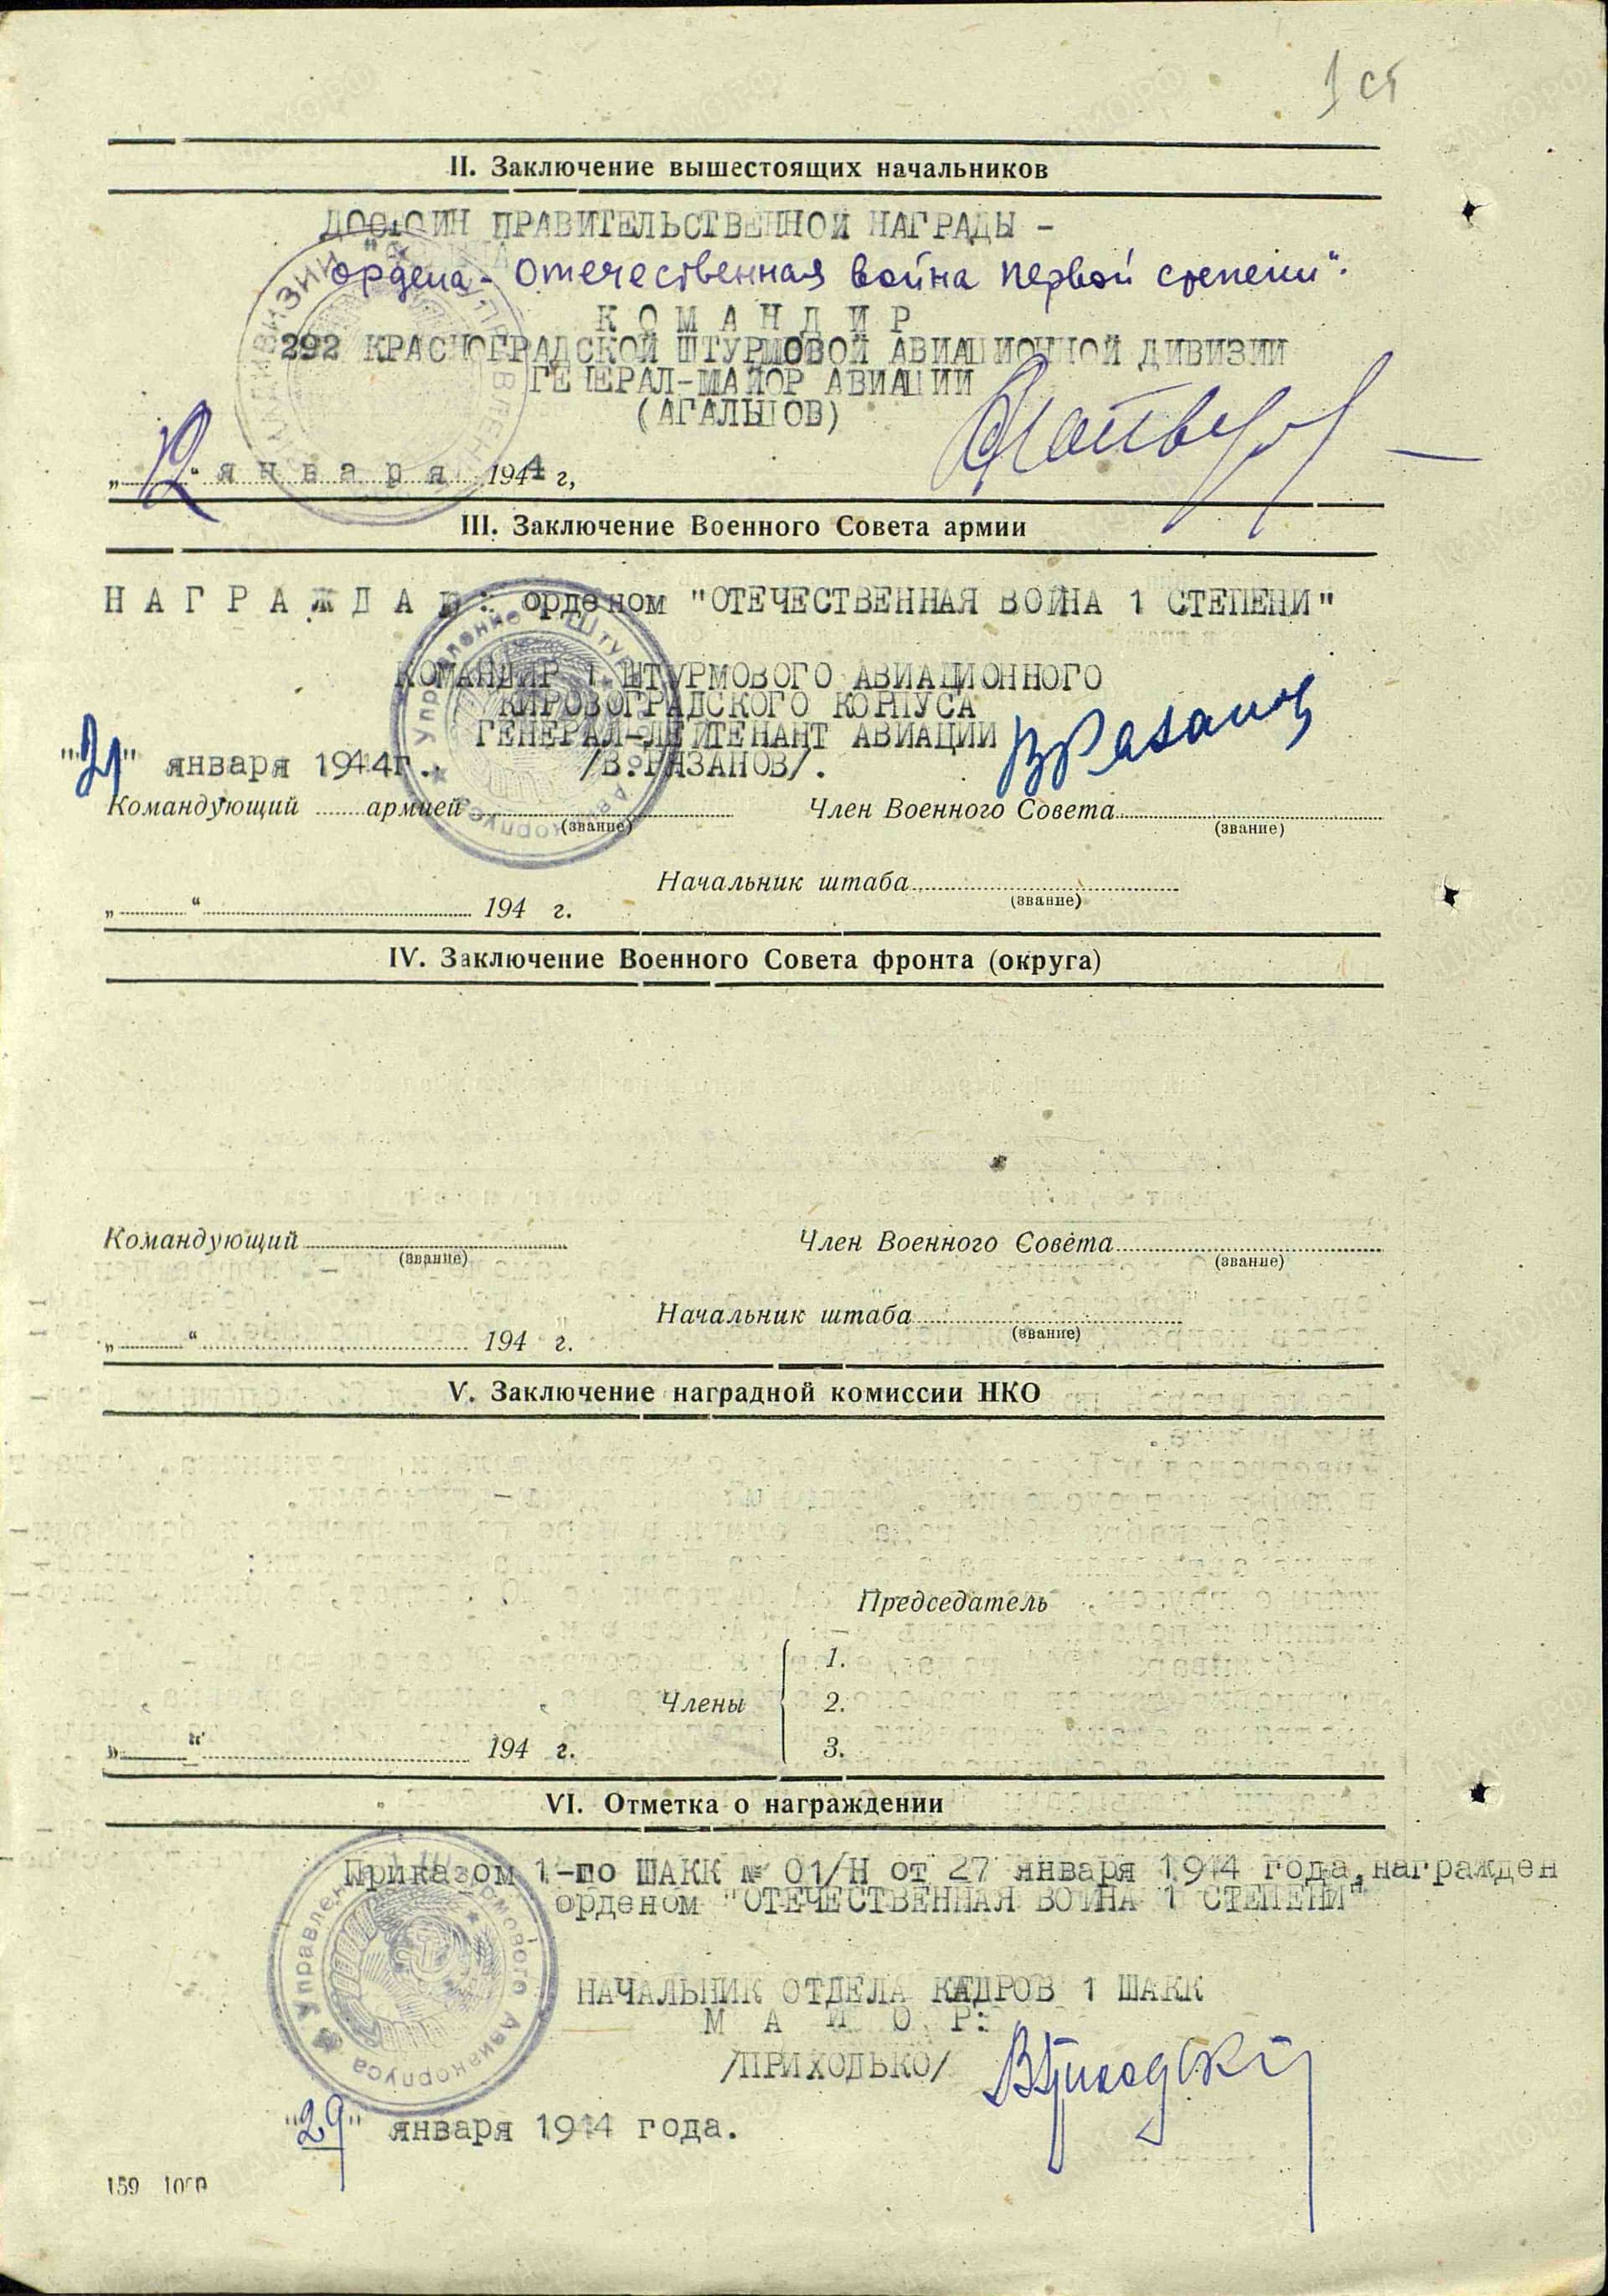 1 ст
II. Заключение вышестоящих начальников
ДОСТОИН ПРАВИТЕЛЬСТВЕННОЙ НАГРАДЫ -
ордена - "Отечественная война первой степени".
К О М А Н Д И Р
292 КРАСНОГРАДСКОЙ ШТУРМОВОЙ АВИАЦИОННОЙ ДИВИЗИИ
ГЕНЕРАЛ-МАЙОР АВИАЦИИ
(АГАЛЬЦОВ)
„12“ января 1944 г,
III. Заключение Военного Совета армии
Н А Г Р А Ж Д А Ю: орденом "ОТЕЧЕСТВЕННАЯ ВОЙНА 1 СТЕПЕНИ"
КОМАНДИР 1 ШТУРМОВОГО АВИАЦИОННОГО
КИРОВОГРАДСКОГО КОРПУСА
ГЕНЕРАЛ-ЛЕЙТЕНАНТ АВИАЦИИ
"21" января 1944г. /В.РЯЗАНОВ/. ВРязанов
Командующий армией Член Военного Совета
(звание) (звание)
Начальник штаба
(звание)
„ “ 194 г.
IV. Заключение Военного Совета фронта (округа)
Командующий Член Военного Совета
(звание) (звание)
Начальник штаба
(звание)
„ “ 194 г.
V. Заключение наградной комиссии НКО
Председатель
1.
Члены 2.
„ “ 194 г. 3.
VI. Отметка о награждении
Приказом 1-го ШАКК № 01/Н от 27 января 1944 года, награжден
орденом "ОТЕЧЕСТВЕННАЯ ВОЙНА 1 СТЕПЕНИ"
Управление 1 Штурмового Авиакорпуса
НАЧАЛЬНИК ОТДЕЛА КАДРОВ 1 ШАКК
М А Й О Р:
/ПРИХОДЬКО/ ВПриходько
"29" января 1944 года.
159